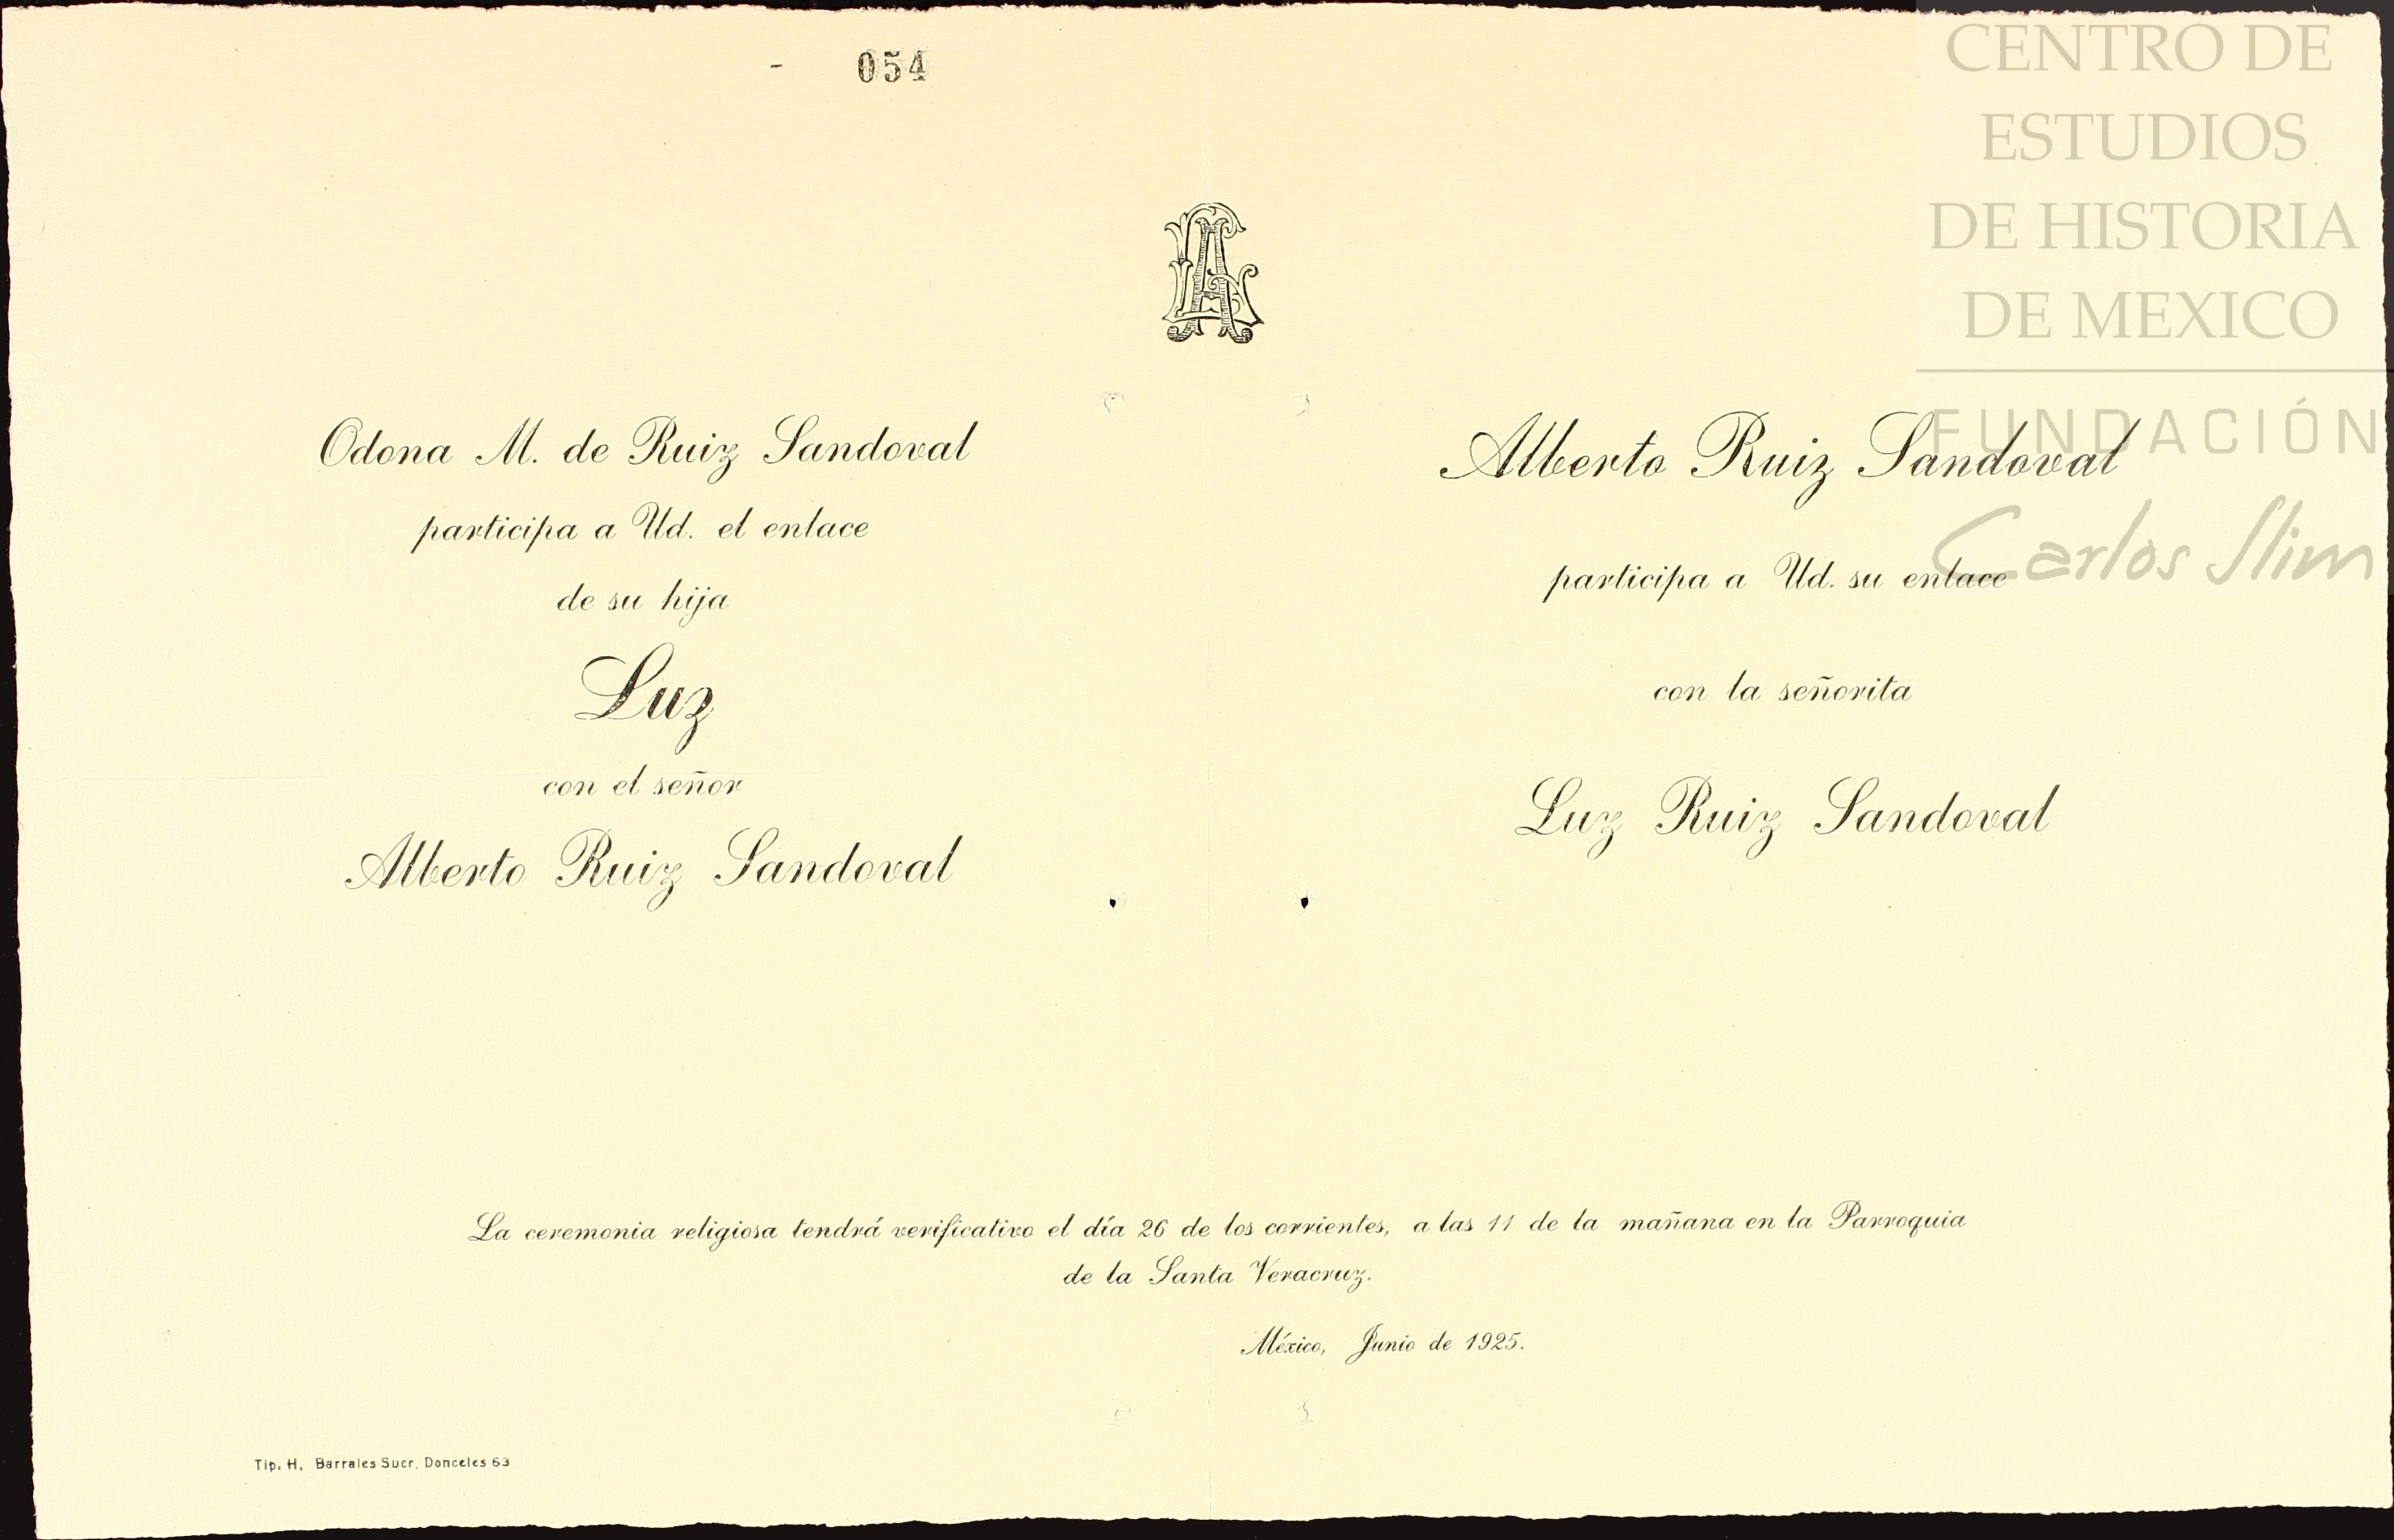 - 054
CENTRO DE
ESTUDIOS
DE HISTORIA
DE MEXICO
FUNDACIÓN
Carlos Slim
LA
Odona M. de Ruiz Sandoval
participa a Ud. el enlace
de su hija
Luz
con el señor
Alberto Ruiz Sandoval
Alberto Ruiz Sandoval
participa a Ud. su enlace
con la señorita
Luz Ruiz Sandoval
La ceremonia religiosa tendrá verificativo el día 26 de los corrientes, a las 11 de la mañana en la Parroquia
de la Santa Veracruz.
México, Junio de 1925.
Tip. H. Barrales Sucr. Donceles 63